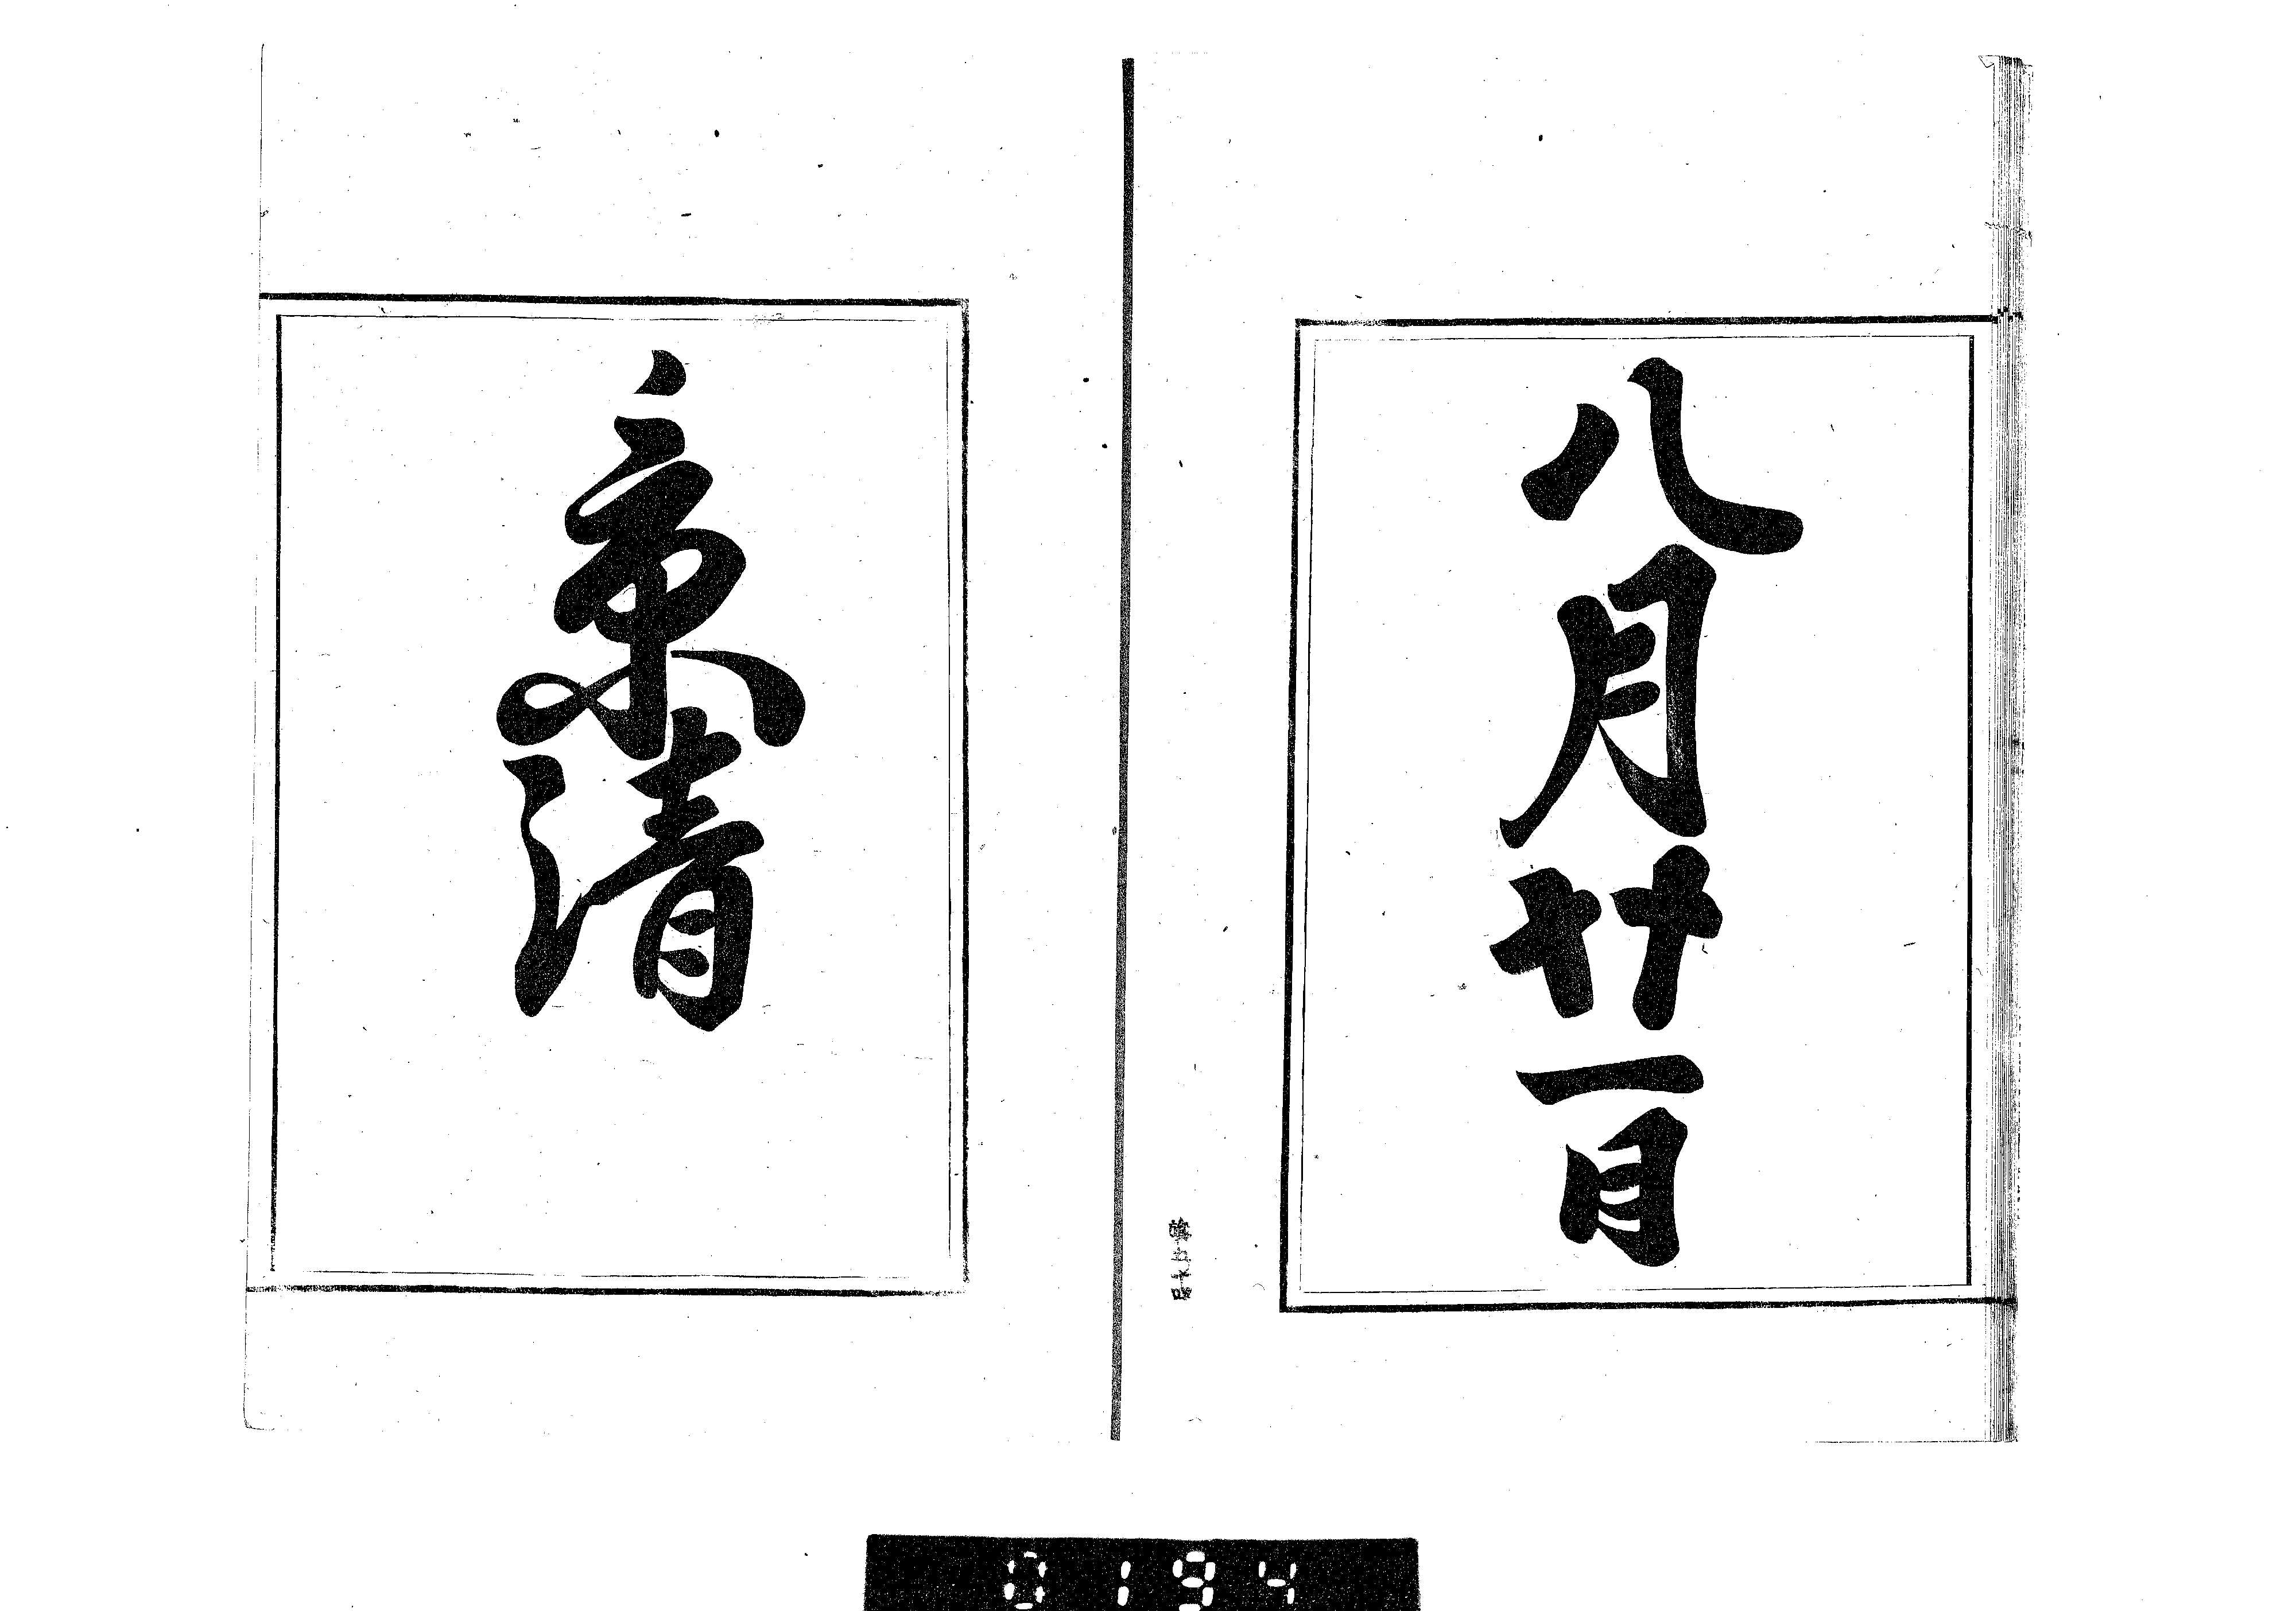 八月廿一日
京清
0194